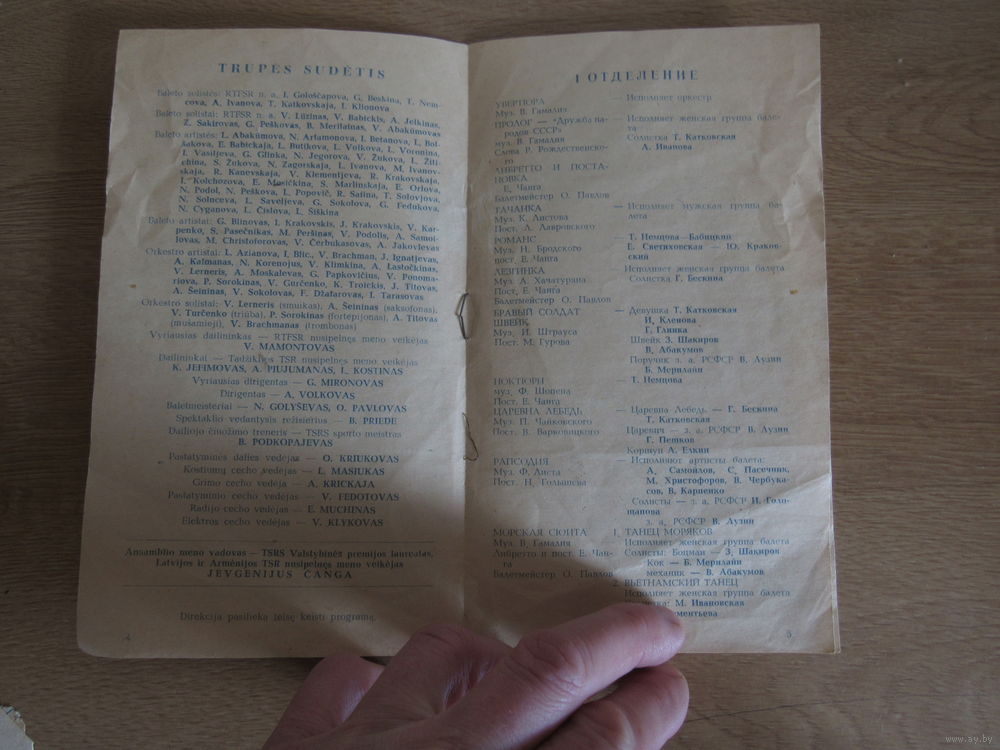 TRUPĖS SUDĖTIS
Baleto solistės: RTFSR n. a. I. Gološčapova, G. Beskina, T. Nem-
cova, A. Ivanova, T. Katkovskaja, I. Klionova
Baleto solistai: RTFSR n. a. V. Lūzinas, V. Babickis, A. Jelkinas,
Z. Šakirovas, G. Peškovas, B. Merilainas, V. Abakūmovas
Baleto artistės: L. Abakūmova, N. Artamonova, I. Betanova, L. Bul-
lakova, E. Babickaja, L. Butikova, L. Volkova, L. Voronina,
I. Vasiljeva, G. Glinka, N. Jegorova, V. Žukova, L. Žiti-
china, S. Žukova, N. Zagorskaja, L. Ivanova, M. Ivanov-
skaja, R. Kanevskaja, V. Klementjeva, R. Krakovskaja,
I. Kolchozova, E. Masičkina, S. Marlinskaja, E. Orlova,
N. Podol, N. Peškova, L. Popovič, R. Safina, T. Solovjova,
N. Solnceva, L. Saveljeva, G. Sokolova, G. Fedukova,
N. Cyganova, L. Čislova, L. Šiškina
Baleto artistai: G. Blinovas, I. Krakovskis, J. Krakovskis, V. Kar-
penko, S. Pasečnikas, M. Peršinas, V. Podolis, A. Samoi-
lovas, M. Christoforovas, V. Čerbukasovas, A. Jakovlevas
Orkestro artistai: L. Azianova, I. Blic, V. Brachman, J. Ignatjevas,
A. Kalmanas, N. Korenojus, V. Klimkina, A. Lastočkinas,
V. Lerneris, A. Moskalevas, G. Papkovičius, V. Ponoma-
riova, P. Sorokinas, V. Gurčenko, K. Troickis, J. Titovas,
A. Šeininas, V. Sokolovas, F. Džafarovas, I. Tarasovas
Orkestro solistai: V. Lerneris (smuikas), A. Šeininas (saksofonas),
V. Turčenko (triūba), P. Sorokinas (fortepijonas), A. Titovas
(mušamieji), V. Brachmanas (trombonas)
Vyriausias dailininkas — RTFSR nusipelnęs meno veikėjas
V. MAMONTOVAS
Dailininkai — Tadžikijos TSR nusipelnęs meno veikėjas
K. JEFIMOVAS, A. PIUJUMANAS, L. KOSTINAS
Vyriausias dirigentas — G. MIRONOVAS
Dirigentas — A. VOLKOVAS
Baletmeisteriai — N. GOLYŠEVAS, O. PAVLOVAS
Spektaklio vedantysis režisierius — B. PRIEDE
Dailiojo čiuožimo treneris — TSRS sporto meistras
B. PODKOPAJEVAS
Pastatyminės dalies vedėjas — O. KRIUKOVAS
Kostiumų cecho vedėjas — L. MASIUKAS
Grimo cecho vedėja — A. KRICKAJA
Pastatyminio cecho vedėjas — V. FEDOTOVAS
Radijo cecho vedėjas — E. MUCHINAS
Elektros cecho vedėjas — V. KLYKOVAS
Ansamblio meno vadovas — TSRS Valstybinės premijos laureatas,
Latvijos ir Armėnijos TSR nusipelnęs meno veikėjas
JEVGENIJUS ČANGA
Direkcija pasilieka teisę keisti programą.
4
I ОТДЕЛЕНИЕ
УВЕРТЮРА — Исполняет оркестр
Муз. В. Гамалия
ПРОЛОГ — «Дружба на- Исполняет женская группа бале-
родов СССР» та
муз. В. Гамалия Солистки Т. Катковская
Слова Р. Рождественско- А. Иванова
го
ЛИБРЕТТО И ПОСТА-
НОВКА
Е. Чанга
Балетмейстер О. Павлов
ТАЧАНКА — Исполняет мужская группа ба-
Муз. К. Листова лета
Пост. Л. Лавровского
РОМАНС — Т. Немцова—Бабицкий
Муз. Н. Бродского Е. Светиховская — Ю. Краков-
пост. Е. Чанга ский
ЛЕЗГИНКА — Исполняет женская группа балета
Муз. А. Хачатуряна Солистка Г. Бескина
Пост. Е. Чанга
Балетмейстер О. Павлов
БРАВЫЙ СОЛДАТ — Девушка Т. Катковская
ШВЕЙК И. Кленова
Муз. И. Штрауса Г. Глинка
Пост. М. Гурова Швейк З. Шакиров
В. Абакумов
Поручик з. а. РСФСР В. Лузин
Б. Мерилайн
НОКТЮРН — Т. Немцова
муз. Ф. Шопена
Пост. Е. Чанга
ЦАРЕВНА ЛЕБЕДЬ — Царевна Лебедь — Г. Бескина
Муз. П. Чайковского Т. Катковская
Пост. В. Варковицкого Царевич — з. а. РСФСР В. Лузин
Г. Пешков
Коршун А. Елкин
РАПСОДИЯ — Исполняют артисты балета:
Муз. Ф. Листа А. Самойлов, С. Пасечник,
Пост. Н. Голышева М. Христофоров, В. Чербука-
сов, В. Карпенко
Солисты — з. а. РСФСР И. Голо-
щапова
з. а. РСФСР В. Лузин
МОРСКАЯ СЮИТА 1. ТАНЕЦ МОРЯКОВ
Муз. В. Гамалия Исполняет женская группа балета
Либретто и пост. Е. Чан- Солисты: Боцман — З. Шакиров
га Кок — Б. Мерилайн
Балетмейстер О. Павлов механик — В. Абакумов
2. ВЬЕТНАМСКИЙ ТАНЕЦ
Исполняет женская группа балета
М. Ивановская
5
www.ay.by